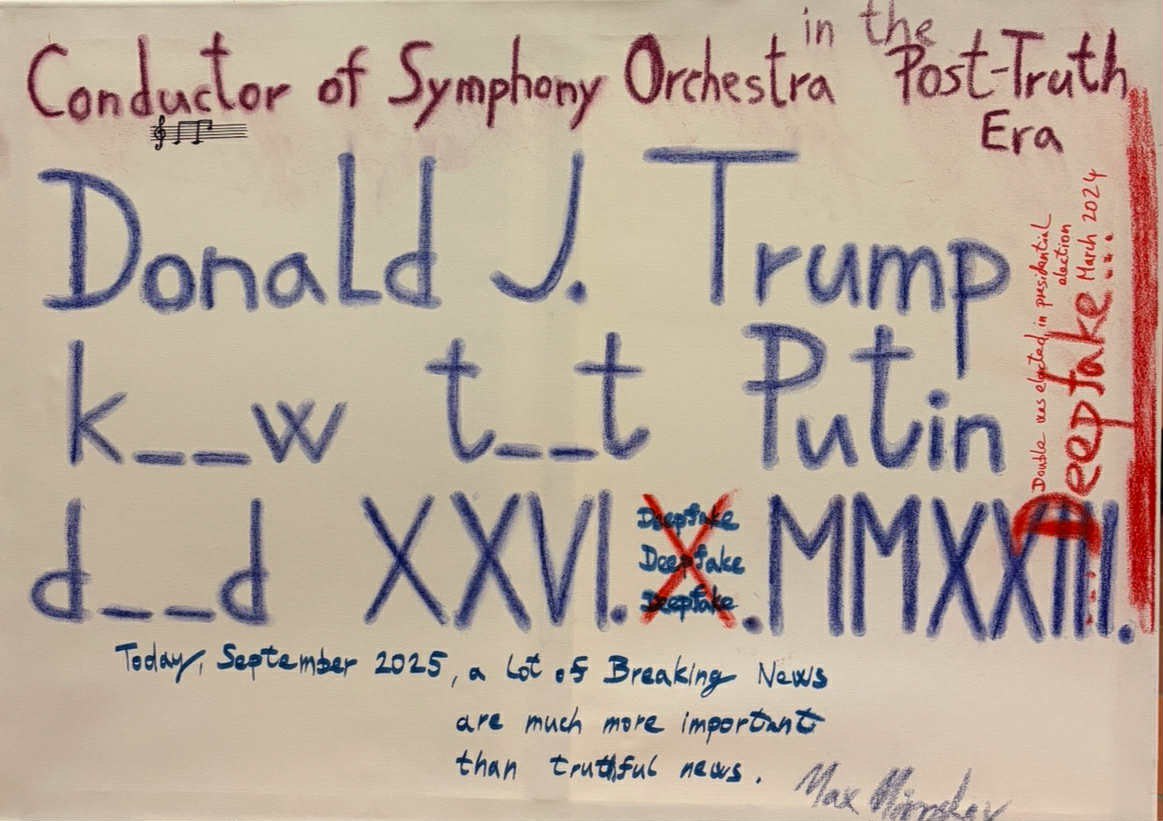 in the
Conductor of Symphony Orchestra Post-Truth
Era
Donald J. Trump
k__w t__t Putin
d__d XXVI. X .MMXXIII.
Deepfake
Deepfake
Deepfake
Double was elected in presidential
election
March 2024
Deepfake...
Today, September 2025, a Lot of Breaking News
are much more important
than truthful news.
Max